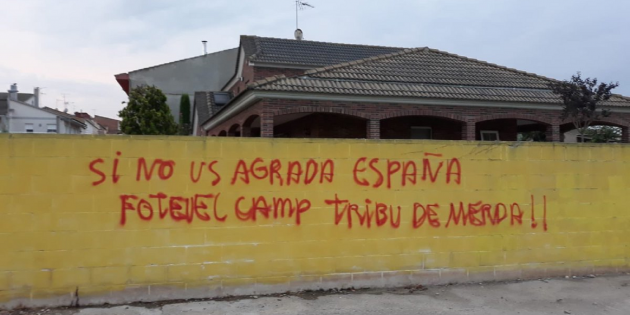 SI NO US AGRADA ESPAÑA
FOTEUEL CAMP TRIBU DE MERDA!!